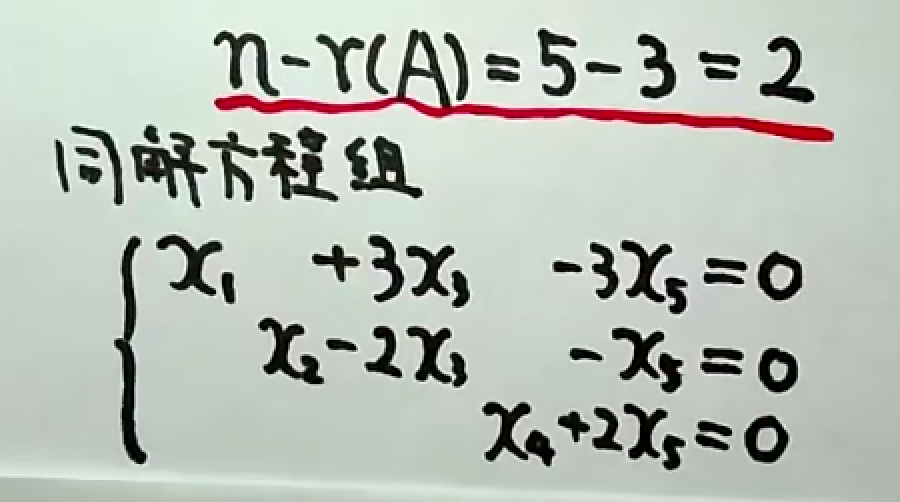 n-r(A)=5-3=2
同解方程组
x₁ +3x₃ -3x₅=0
x₂-2x₃ -x₅=0
x₄+2x₅=0